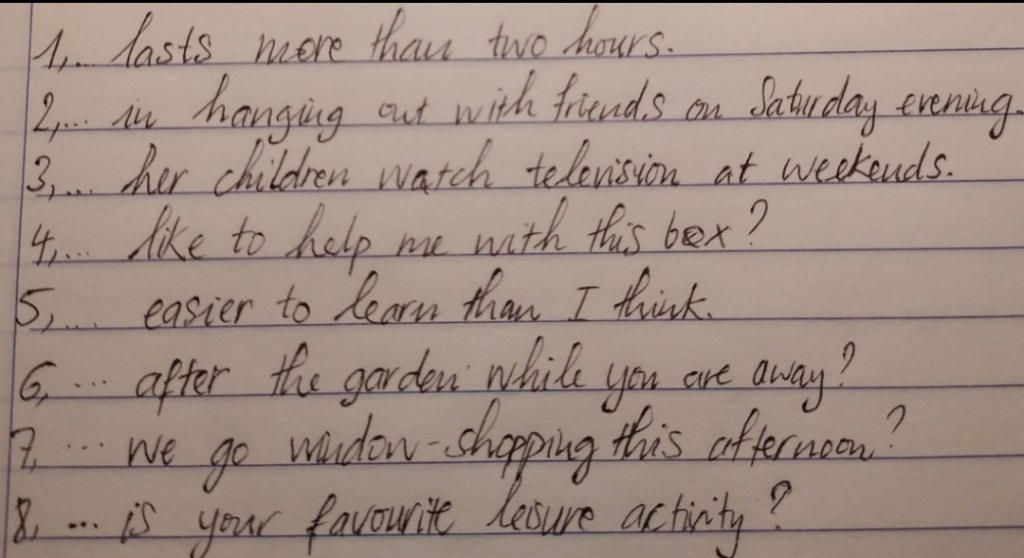 1,... lasts more than two hours.
2,... in hanging out with friends on Saturday evening.
3,... her children watch television at weekends.
4,... like to help me with this box?
5,... easier to learn than I think.
6,... after the garden while you are away?
7, ... we go window-shopping this afternoon?
8, ... is your favourite leisure activity?